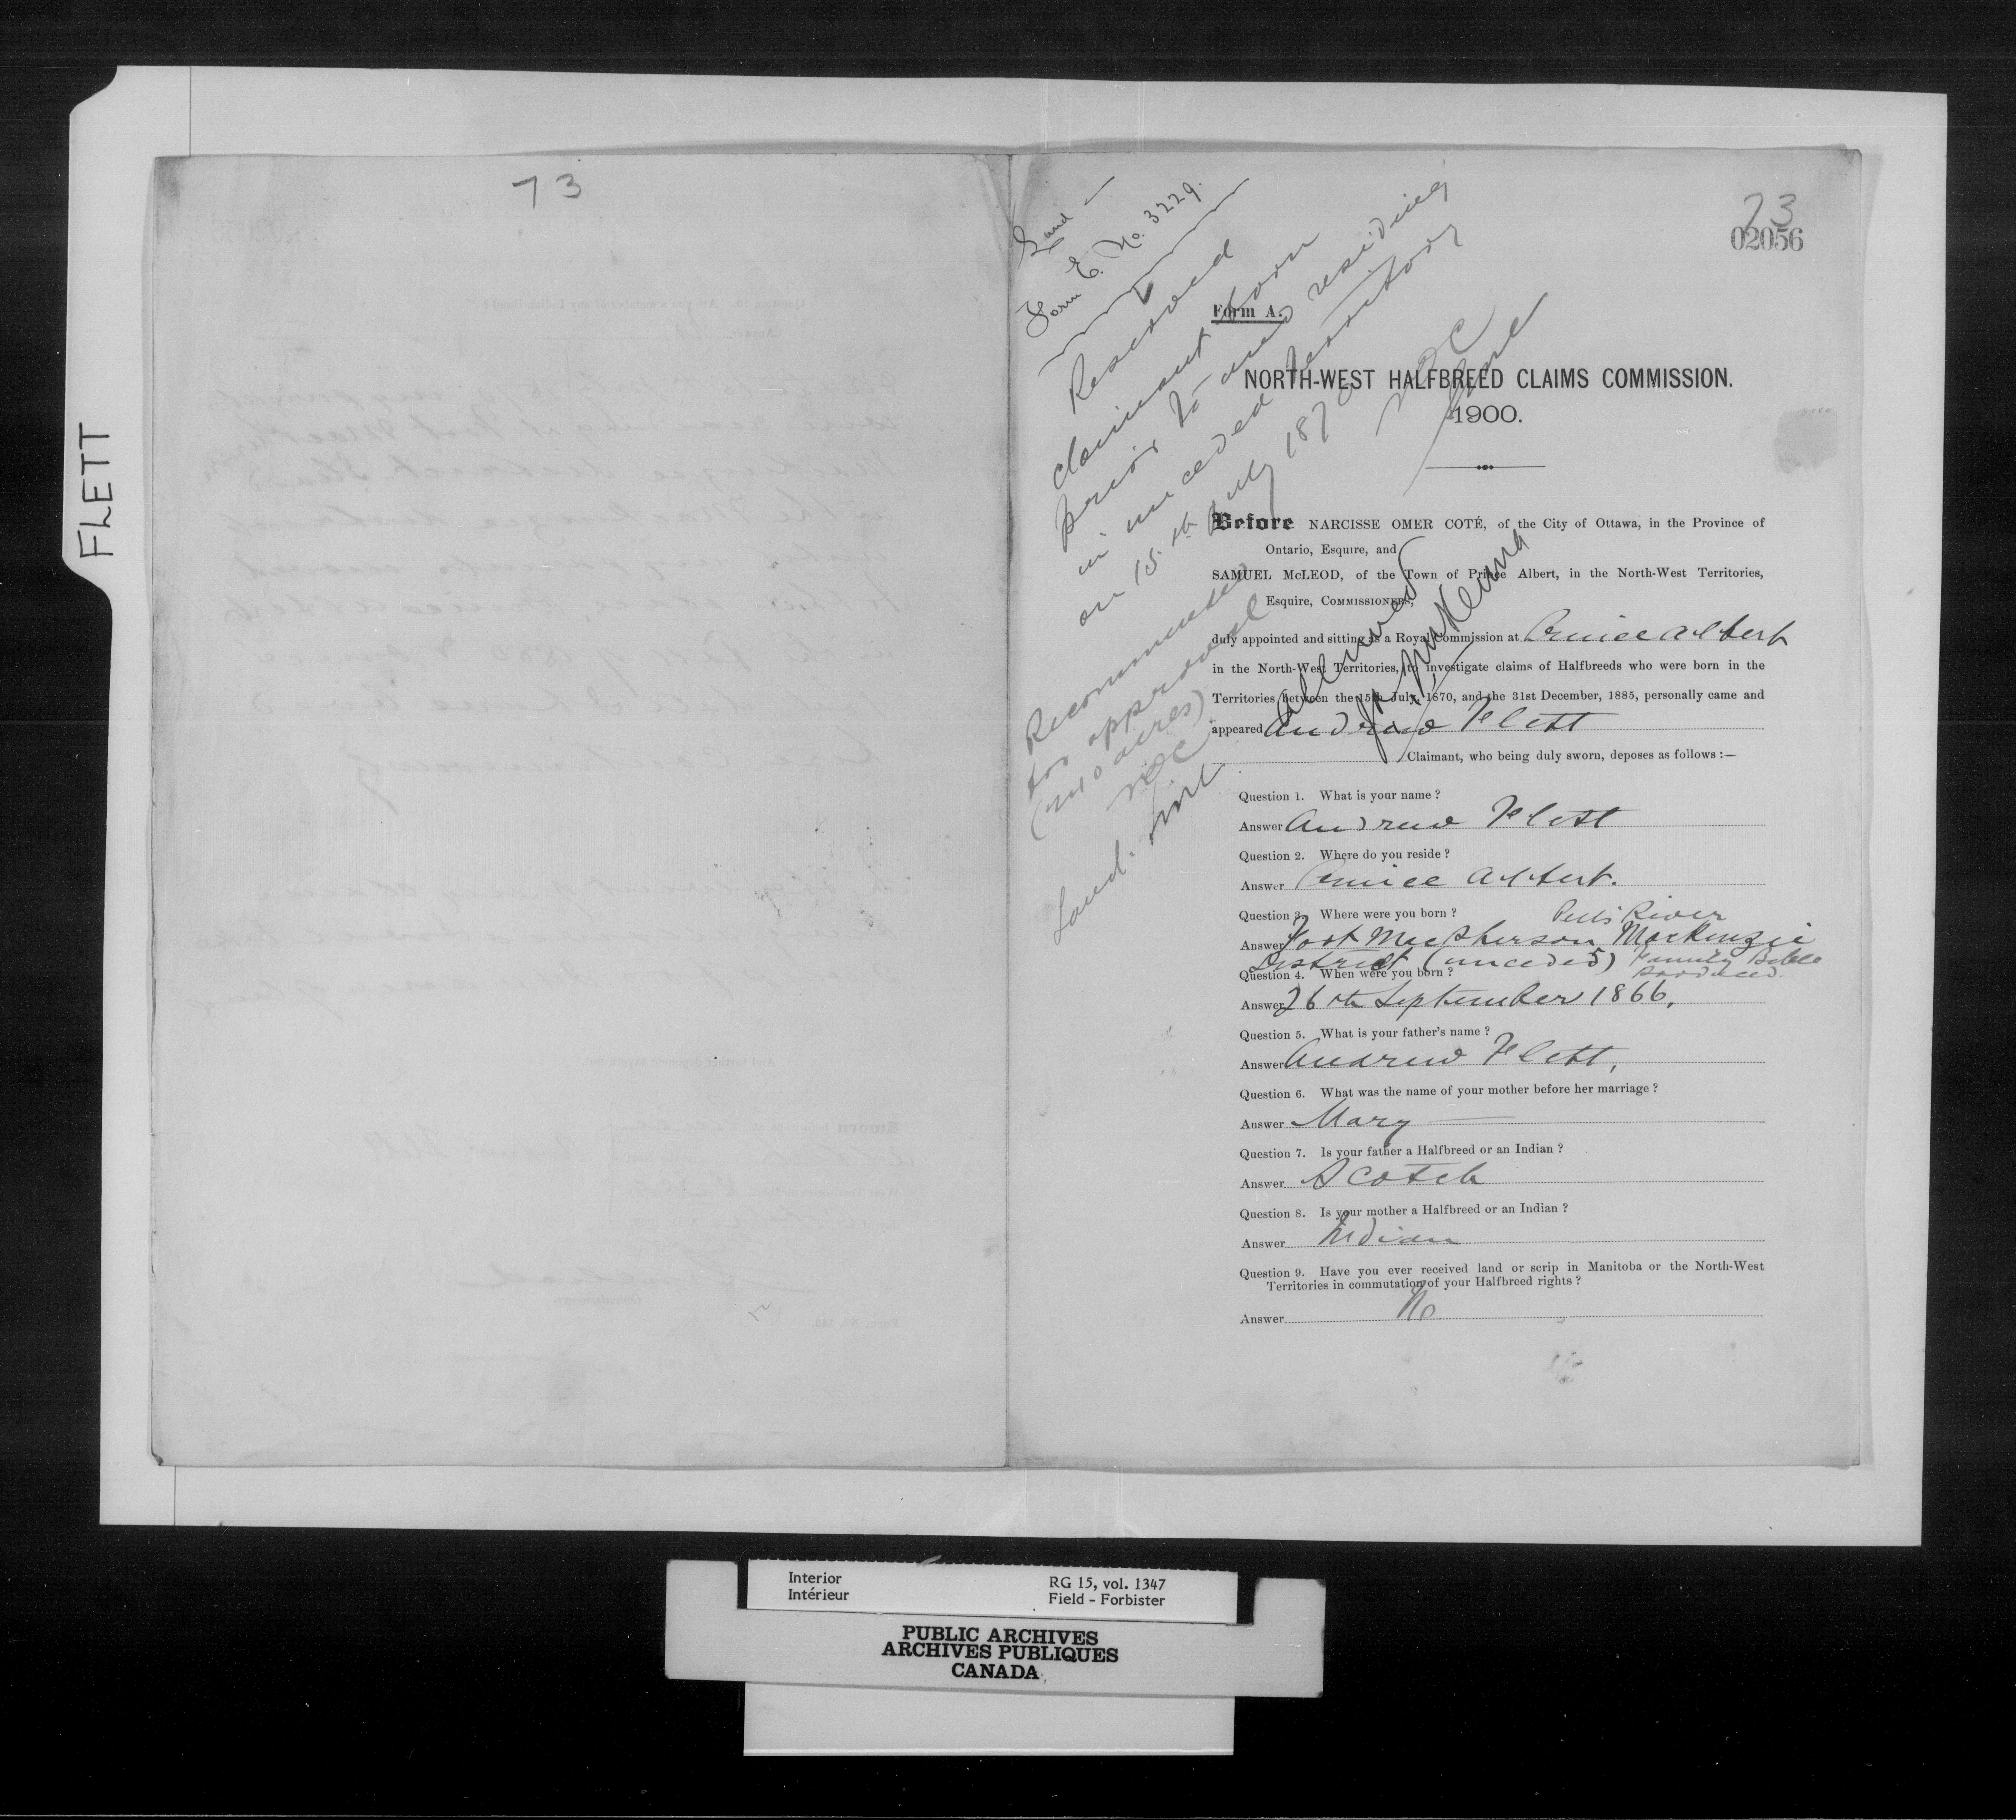 FLETT
73
Land —
Form E. No. 3229.
Reserved
claimant born
prior to and residing
in unceded territory
on 15th July 1870
NOC
Recommended
for approval
(240 acres)
NOC
Land.
Allowed
73
02056
Form A.
NORTH-WEST HALFBREED CLAIMS COMMISSION.
1900.
Before NARCISSE OMER COTÉ, of the City of Ottawa, in the Province of
Ontario, Esquire, and
SAMUEL McLEOD, of the Town of Prince Albert, in the North-West Territories,
Esquire, COMMISSIONERS,
duly appointed and sitting as a Royal Commission at Prince Albert
in the North-West Territories, to investigate claims of Halfbreeds who were born in the
Territories between the 15th July, 1870, and the 31st December, 1885, personally came and
appeared Andrew Flett
Claimant, who being duly sworn, deposes as follows :—
Question 1. What is your name ?
Answer Andrew Flett
Question 2. Where do you reside ?
Answer Prince Albert.
Question 3. Where were you born ? Peels River
Answer Fort MacPherson Mackenzie
District (unceded) Family Bible
produced.
Question 4. When were you born ?
Answer 26th September 1866.
Question 5. What is your father's name ?
Answer Andrew Flett,
Question 6. What was the name of your mother before her marriage ?
Answer Mary —
Question 7. Is your father a Halfbreed or an Indian ?
Answer Scotch
Question 8. Is your mother a Halfbreed or an Indian ?
Answer Indian
Question 9. Have you ever received land or scrip in Manitoba or the North-West
Territories in commutation of your Halfbreed rights ?
Answer No
Interior
Intérieur
RG 15, vol. 1347
Field - Forbister
PUBLIC ARCHIVES
ARCHIVES PUBLIQUES
CANADA